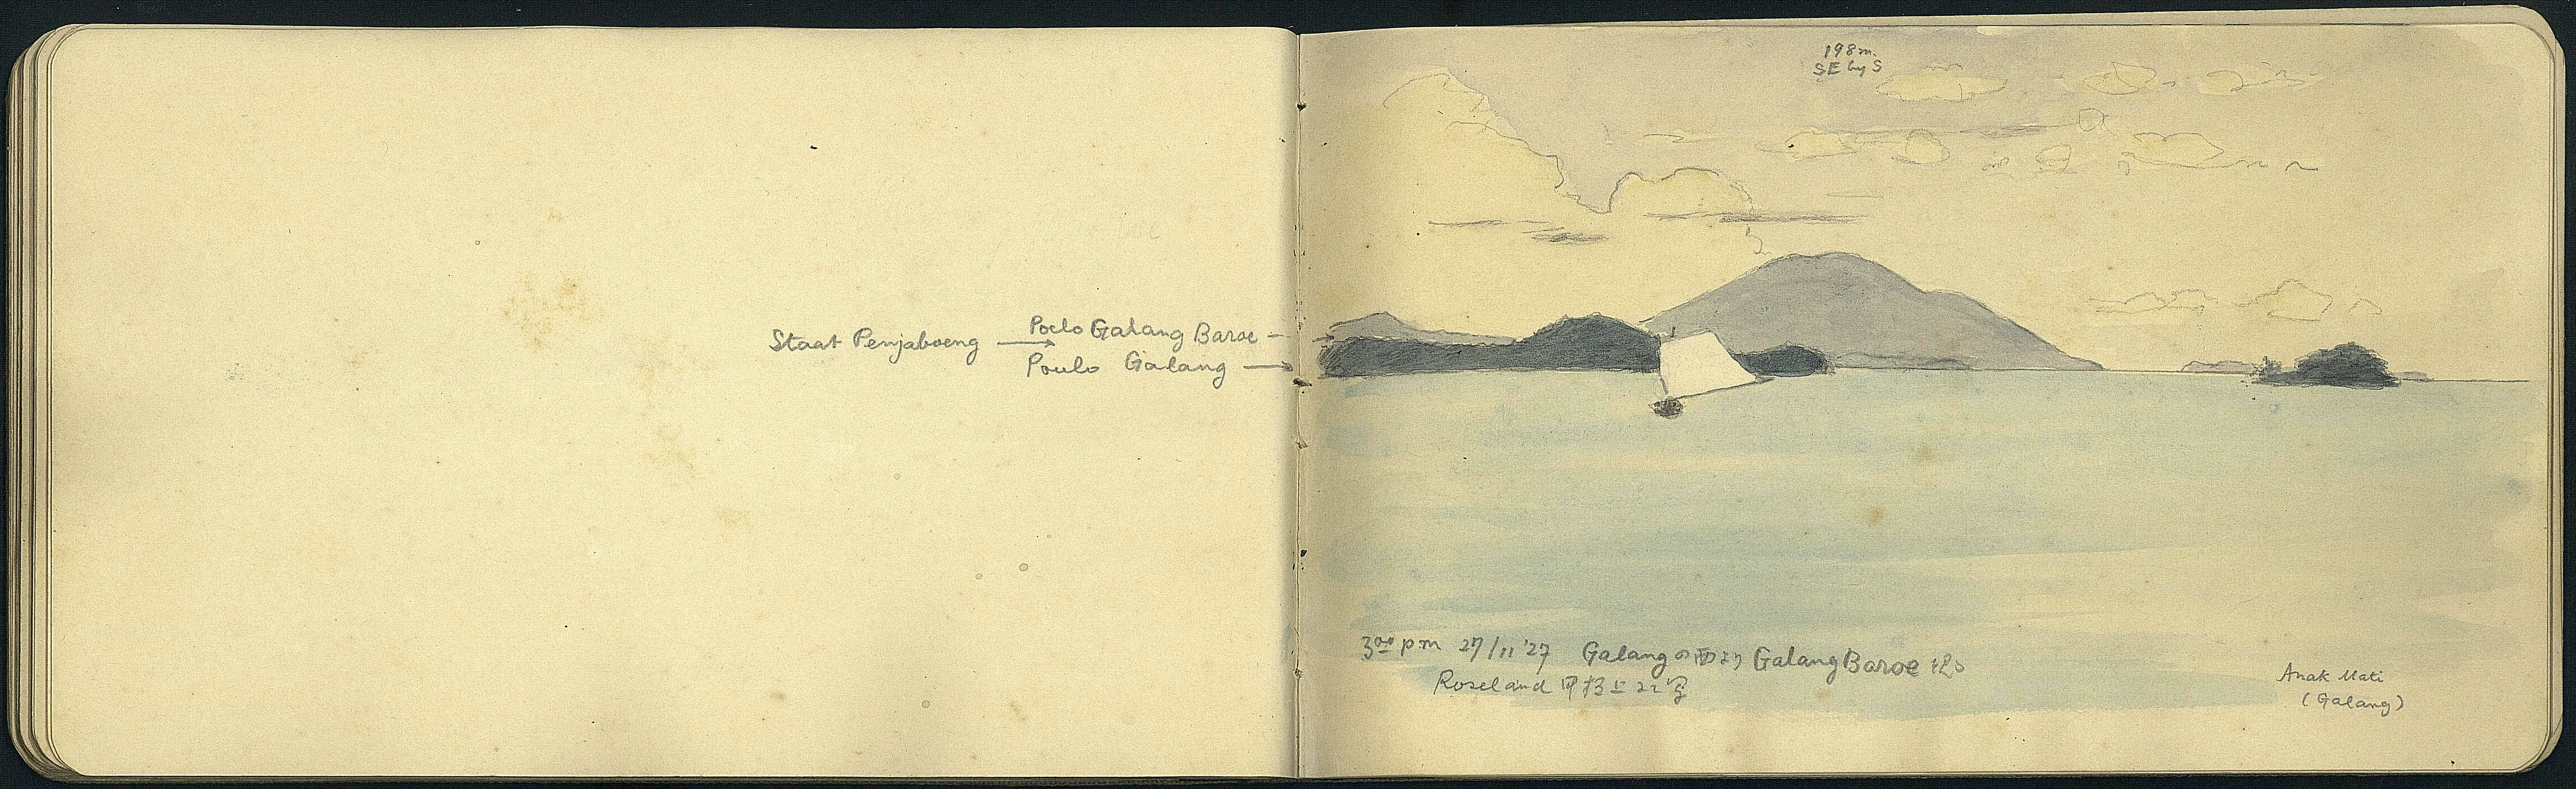 Staat Penjaboeng →
Poelo Galang Baroe –
Poulo Galang →
198 m.
SE by S
3⁰⁰ pm 27/11 '27 Galangの西より Galang Baroe
Roseland 甲板上
Anak Mati
(Galang)